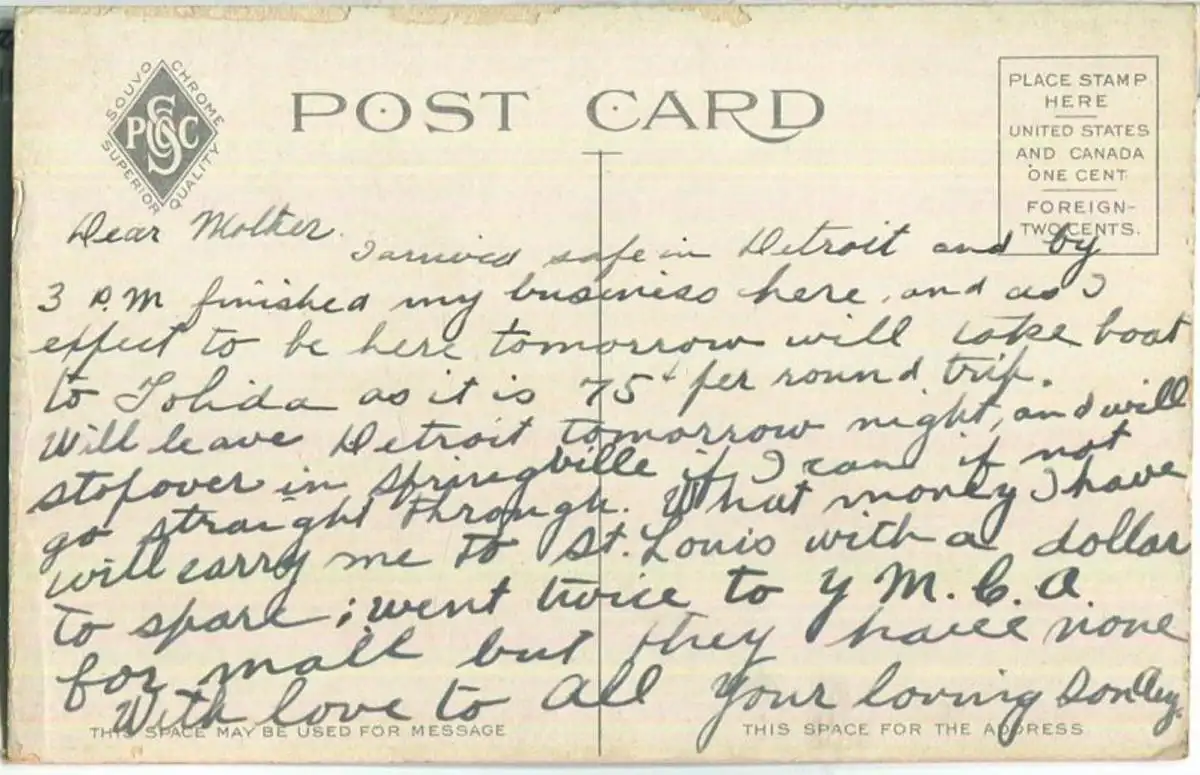 SOUVO CHROME
PSC
SUPERIOR QUALITY
POST CARD
PLACE STAMP
HERE
UNITED STATES
AND CANADA
ONE CENT
FOREIGN-
TWO CENTS.
Dear Mother.
I arrived safe in Detroit and by
3 P.M finished my business here, and as I
effect to be here tomorrow will take boat
to Tolida as it is 75¢ per round trip.
Will leave Detroit tomorrow night, and will
stopover in Springville if I can if not
go straight through. What money I have
will carry me to St. Louis with a dollar
to spare; went twice to Y M. C. A
for mall but they have none
With love to all Your loving Son
THIS SPACE MAY BE USED FOR MESSAGE
THIS SPACE FOR THE ADDRESS